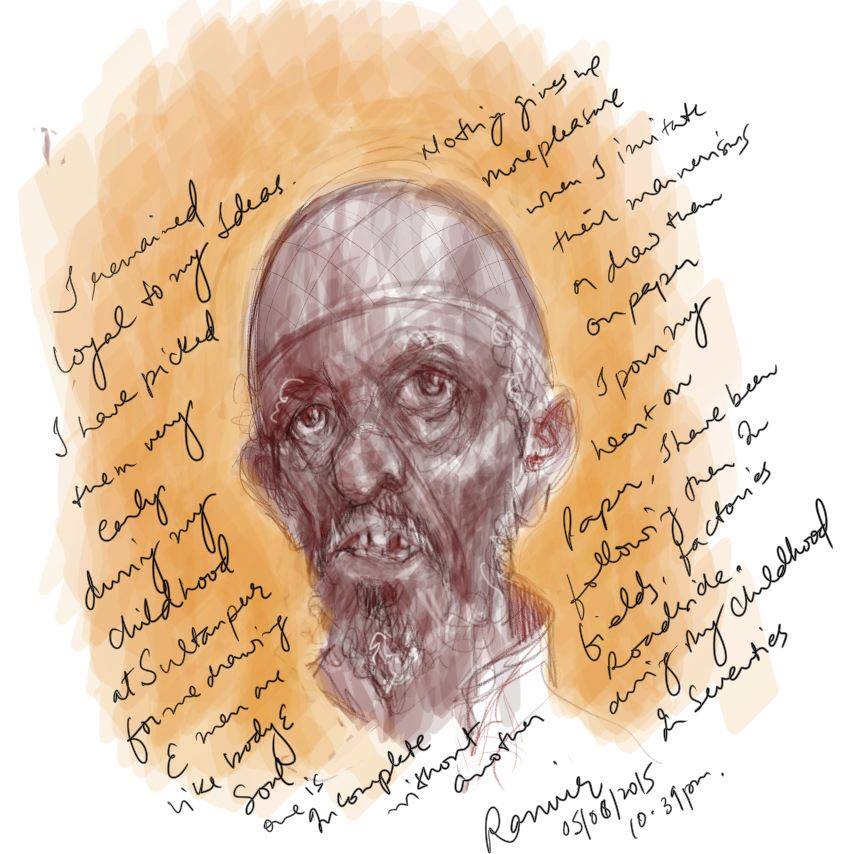 I remained
loyal to my Ideas.
I have picked
them very
early
during my
childhood
at Sultanpur
for me drawing
& men are
like body &
Soul
one is
In complete
without
another
Nothing gives me
more pleasure
when I imitate
their mannerisms
or draw them
on paper
I pour my
heart on
Paper, I have been
following them In
fields, factories
Roadside.
during my childhood
In Seventies
Ranvir
05/08/2015
10.39pm.